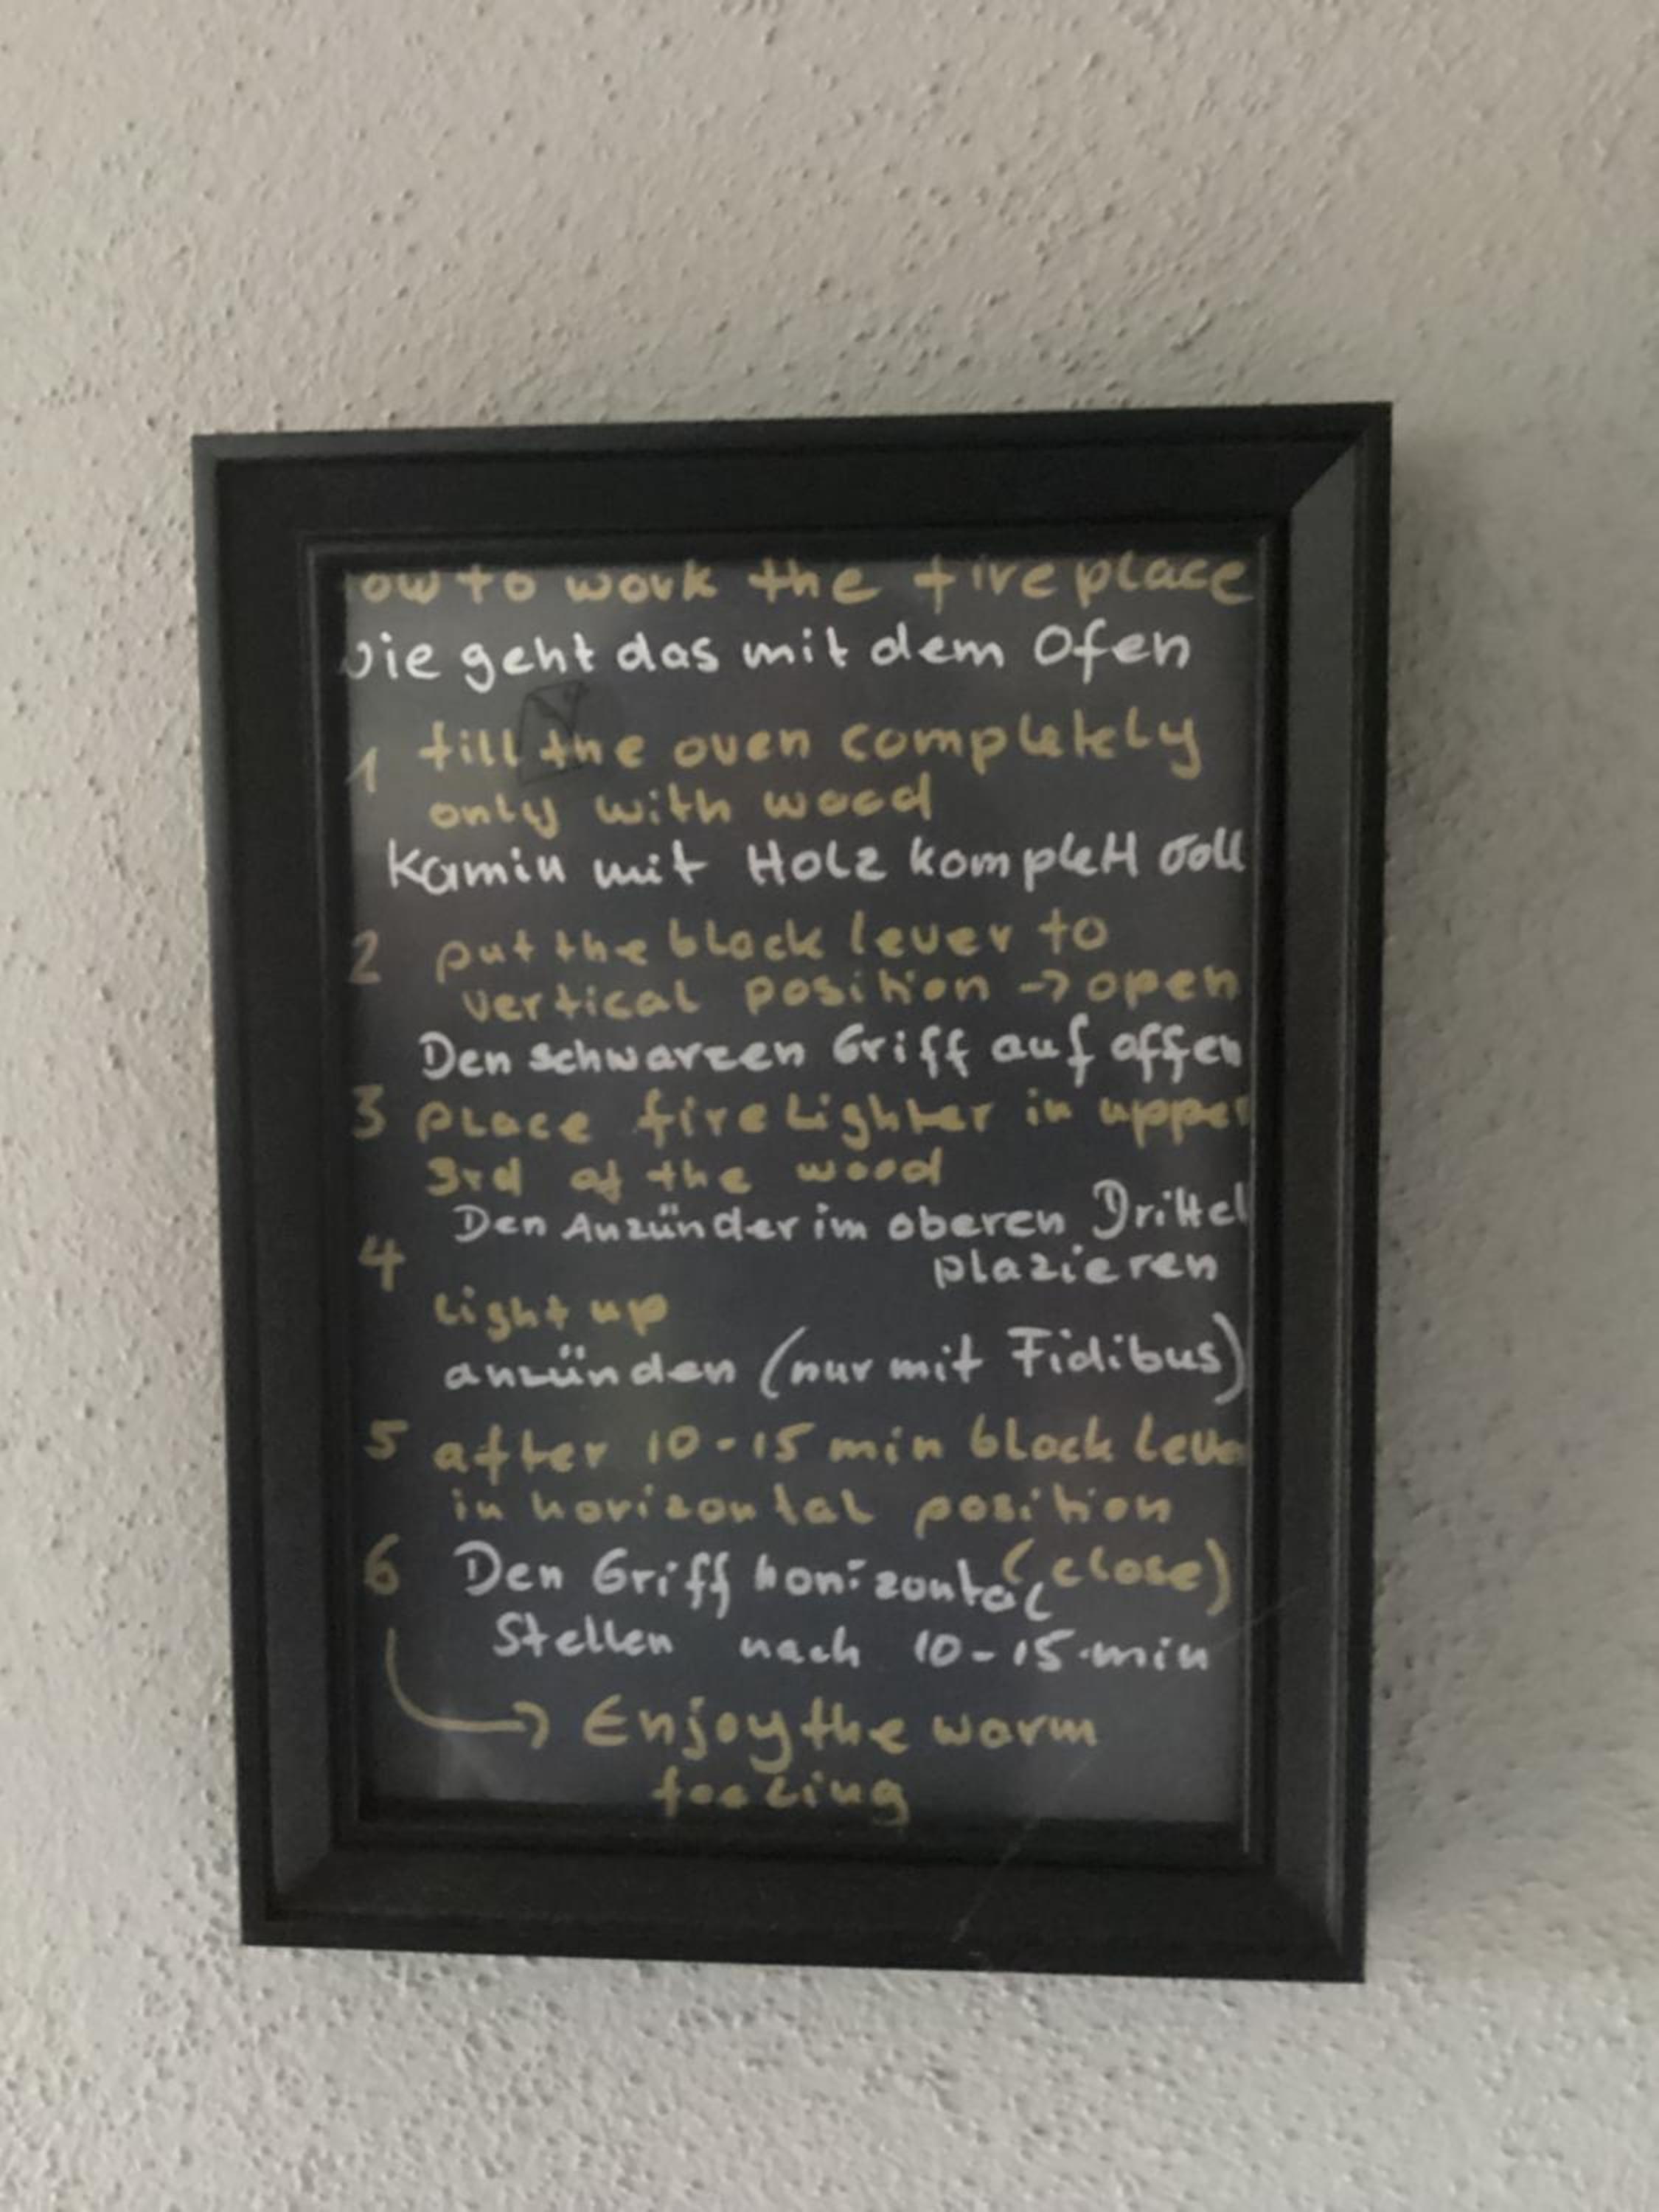 ow to work the fireplace
wie geht das mit dem Ofen
1 fill the oven completely
only with wood
Kamin mit Holz komplett voll
2 put the black lever to
vertical position → open
Den schwarzen Griff auf offen
3 place firelighter in upper
3rd of the wood
Den Anzünder im oberen Drittel
plazieren
4
light up
anzünden (nur mit Fidibus)
5 after 10-15 min black leve
in horizontal position
(close)
6 Den Griff horizontal
Stellen nach 10-15 min
→ Enjoy the warm
feeling